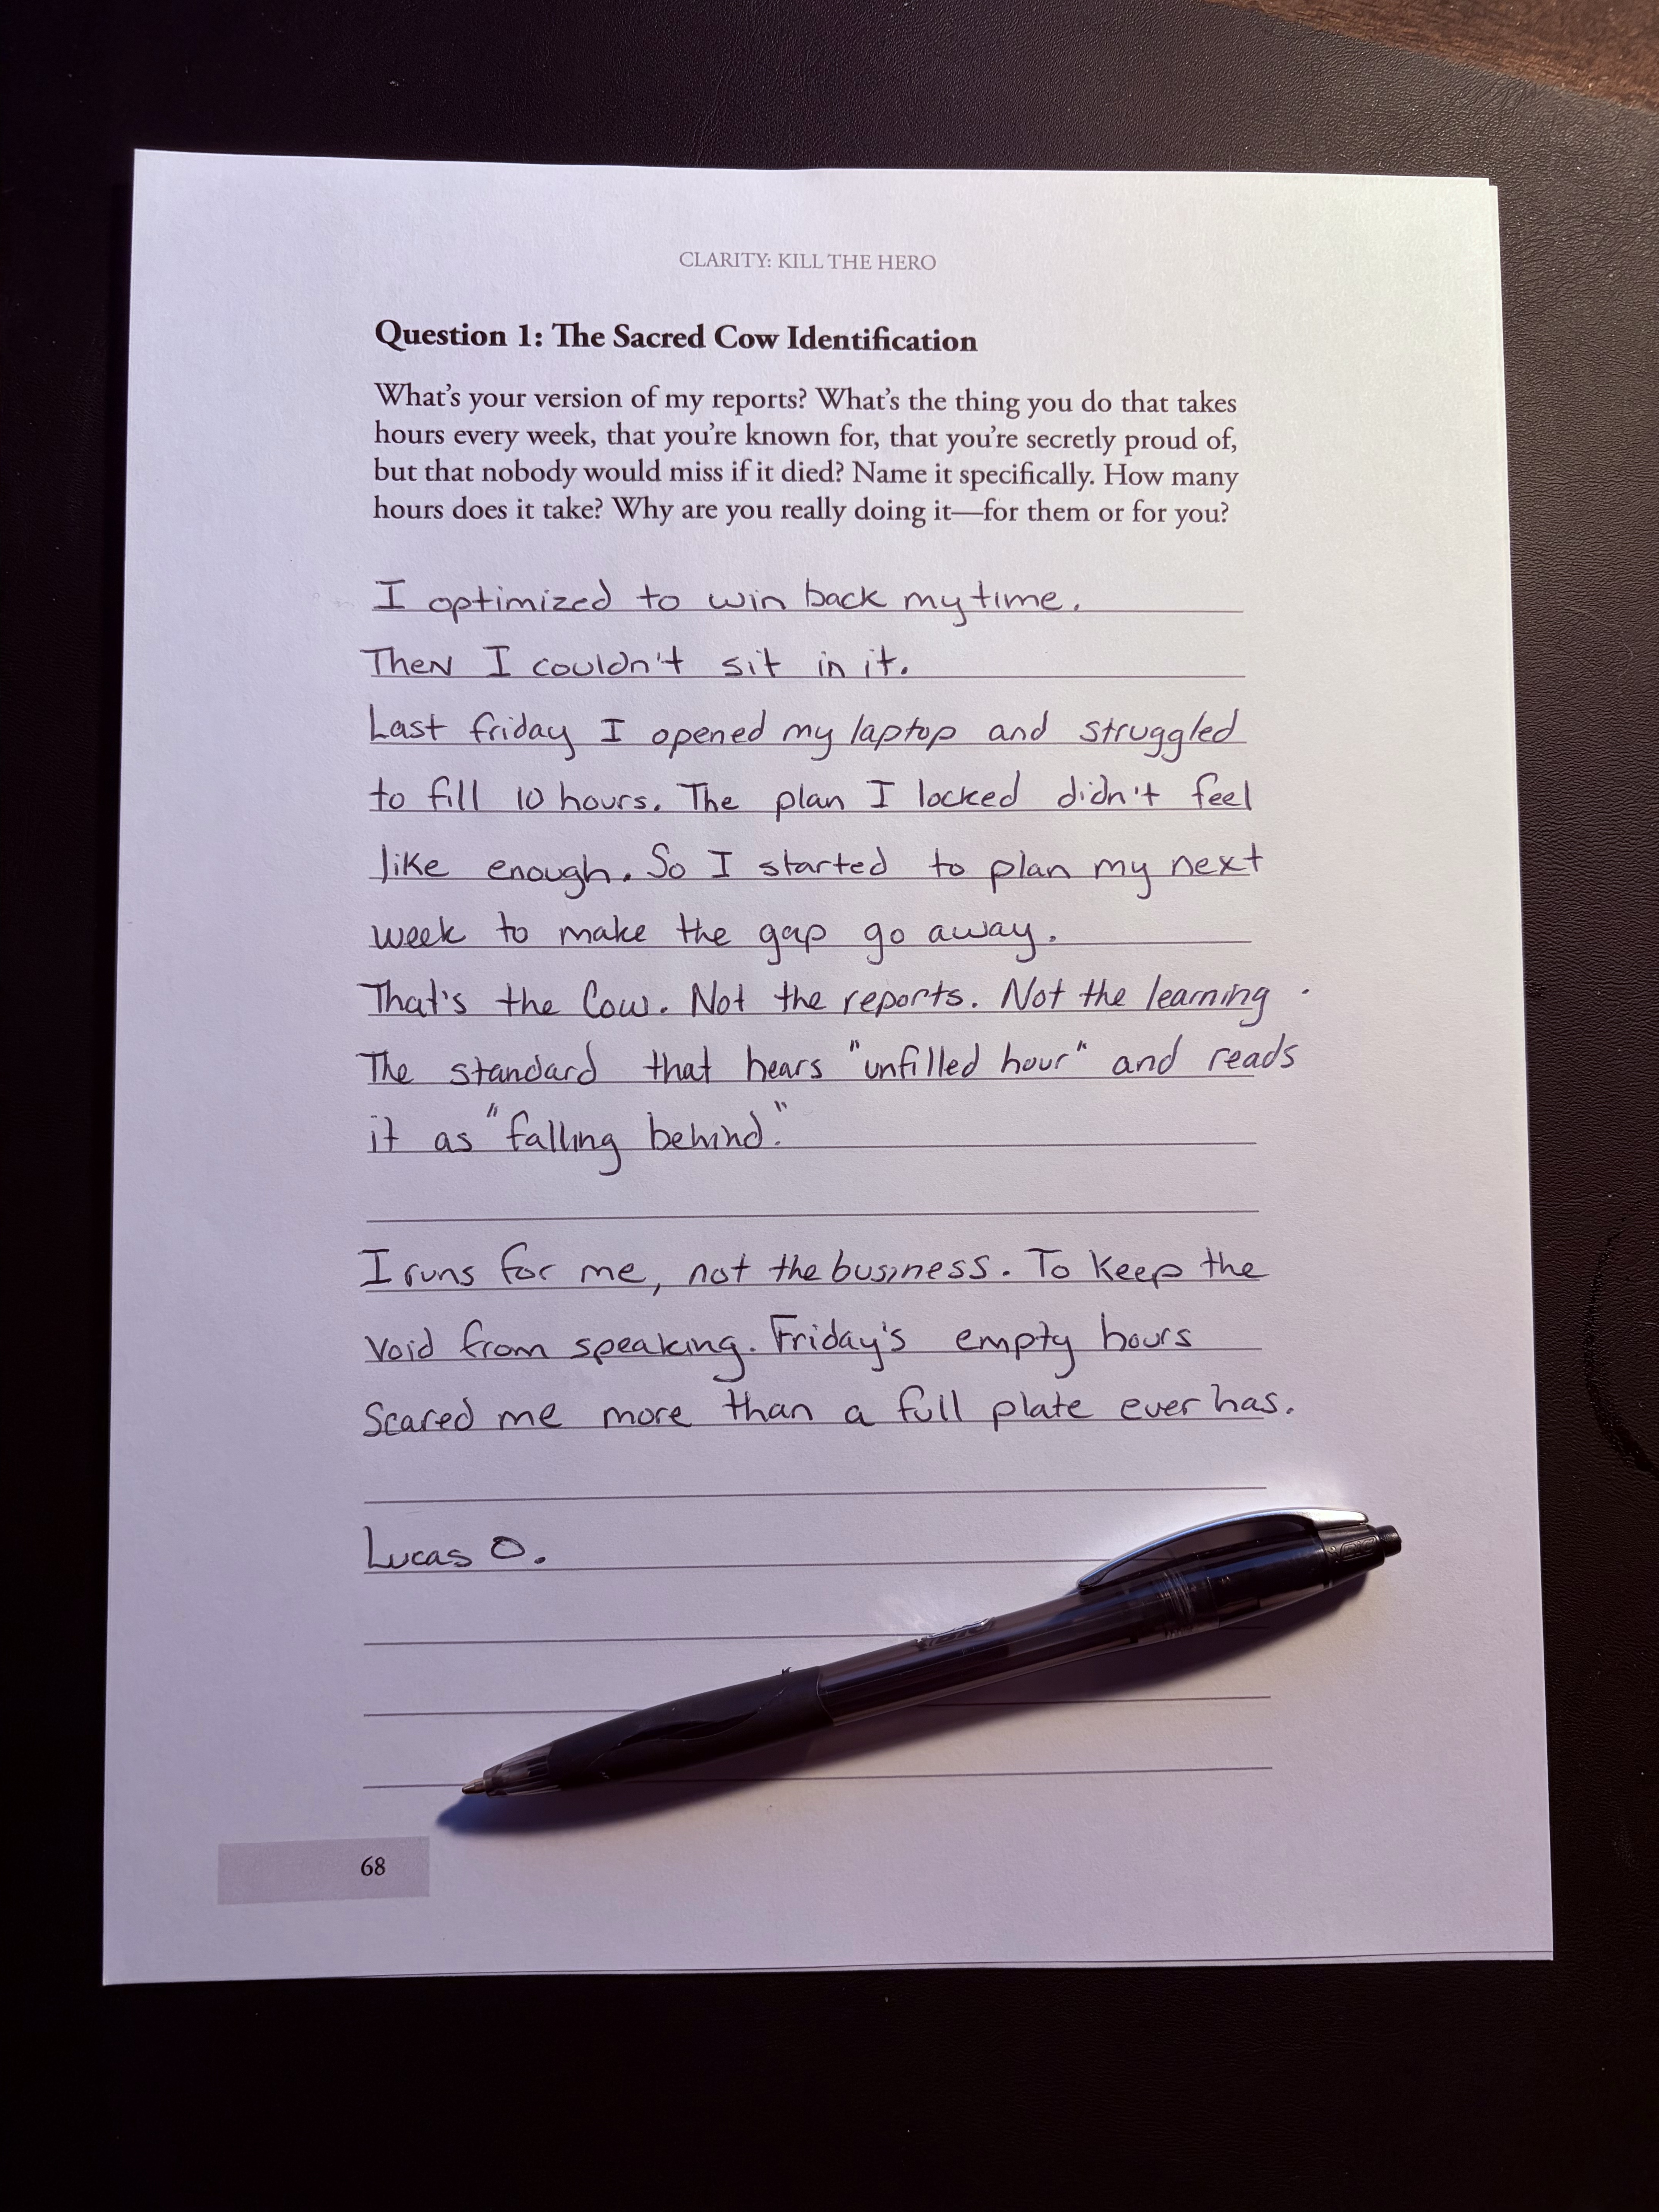 CLARITY: KILL THE HERO
Question 1: The Sacred Cow Identification
What's your version of my reports? What's the thing you do that takes
hours every week, that you're known for, that you're secretly proud of,
but that nobody would miss if it died? Name it specifically. How many
hours does it take? Why are you really doing it—for them or for you?
I optimized to win back my time.
Then I couldn't sit in it.
Last friday I opened my laptop and struggled
to fill 10 hours. The plan I locked didn't feel
like enough. So I started to plan my next
week to make the gap go away.
That's the Cow. Not the reports. Not the learning.
The standard that hears "unfilled hour" and reads
it as "falling behind."
I runs for me, not the business. To keep the
void from speaking. Friday's empty hours
Scared me more than a full plate ever has.
Lucas O.
68